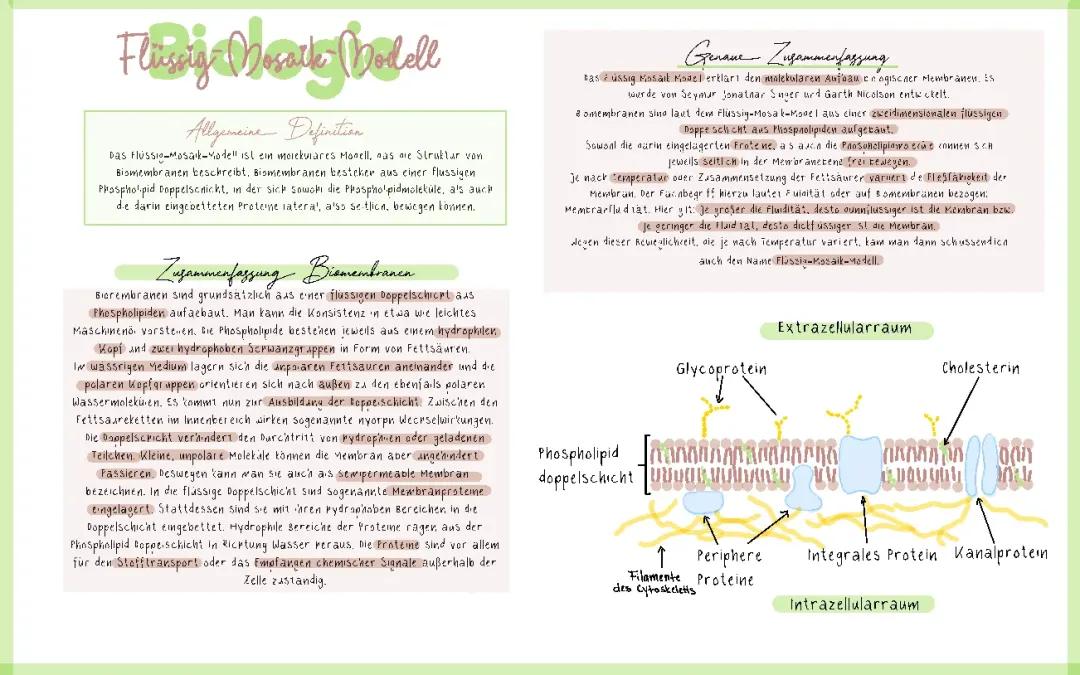 Biologie
Flüssig-Mosaik-Modell
Allgemeine Definition
Das Flüssig-Mosaik-Modell ist ein molekulares Modell, das die Struktur von
Biomembranen beschreibt. Biomembranen bestehen aus einer flüssigen
Phospholipid Doppelschicht, in der sich sowohl die Phospholipidmoleküle, als auch
die darin eingebetteten Proteine lateral, also seitlich, bewegen können.
Zusammenfassung Biomembranen
Biomembranen sind grundsätzlich aus einer flüssigen Doppelschicht aus
Phospholipiden aufgebaut. Man kann die Konsistenz in etwa wie leichtes
Maschinenöl vorstellen. Die Phospholipide bestehen jeweils aus einem hydrophilen
Kopf und zwei hydrophoben Schwanzgruppen in Form von Fettsäuren.
Im wässrigen Medium lagern sich die unpolaren Fettsäuren aneinander und die
polaren Kopfgruppen orientieren sich nach außen zu den ebenfalls polaren
Wassermolekülen. Es kommt nun zur Ausbildung der Doppelschicht. Zwischen den
Fettsäureketten im Innenbereich wirken sogenannte Wechselwirkungen.
Die Doppelschicht verhindert den Durchtritt von hydrophilen oder geladenen
Teilchen. Kleine, unpolare Moleküle können die Membran aber ungehindert
Passieren. Deswegen kann man sie auch als semipermeable Membran
bezeichnen. In die flüssige Doppelschicht sind sogenannte Membranproteine
eingelagert. Stattdessen sind sie mit ihren hydrophoben Bereichen in die
Doppelschicht eingebettet. Hydrophile Bereiche der Proteine ragen aus der
Phospholipid Doppelschicht in Richtung Wasser heraus. Die Proteine sind vor allem
für den Stofftransport oder das Empfangen chemischer Signale außerhalb der
Zelle zuständig.
Genaue Zusammenfassung
Das Flüssig Mosaik Modell erklärt den molekularen Aufbau biologischer Membranen. Es
wurde von Seymur Jonathan Singer und Garth Nicolson entwickelt.
Biomembranen sind laut dem Flüssig-Mosaik-Modell aus einer zweidimensionalen flüssigen
Doppelschicht aus Phospholipiden aufgebaut.
Sowohl die darin eingelagerten Proteine, als auch die Phospholipidmoleküle können sich
jeweils seitlich in der Membranebene frei bewegen.
Je nach Temperatur oder Zusammensetzung der Fettsäuren variiert die Fließfähigkeit der
Membran. Der Fachbegriff hierzu lautet Fluidität oder auf Biomembranen bezogen:
Membranfluidität. Hier gilt: Je größer die Fluidität, desto dünnflüssiger ist die Membran bzw.
Je geringer die Fluidität, desto dickflüssiger ist die Membran.
Wegen dieser Beweglichkeit, die je nach Temperatur variert, kam man dann schlussendlich
auch den Name Flüssig-Mosaik-Modell.
Extrazellularraum
Glycoprotein
Cholesterin
Phospholipid
doppelschicht
Periphere
Proteine
Integrales Protein
Kanalprotein
Filamente
des Cytoskeletts
Intrazellularraum